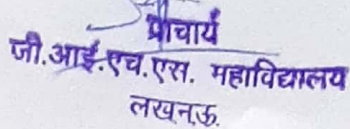 प्राचार्य
जी.आई.एच.एस. महाविद्यालय
लखनऊ.